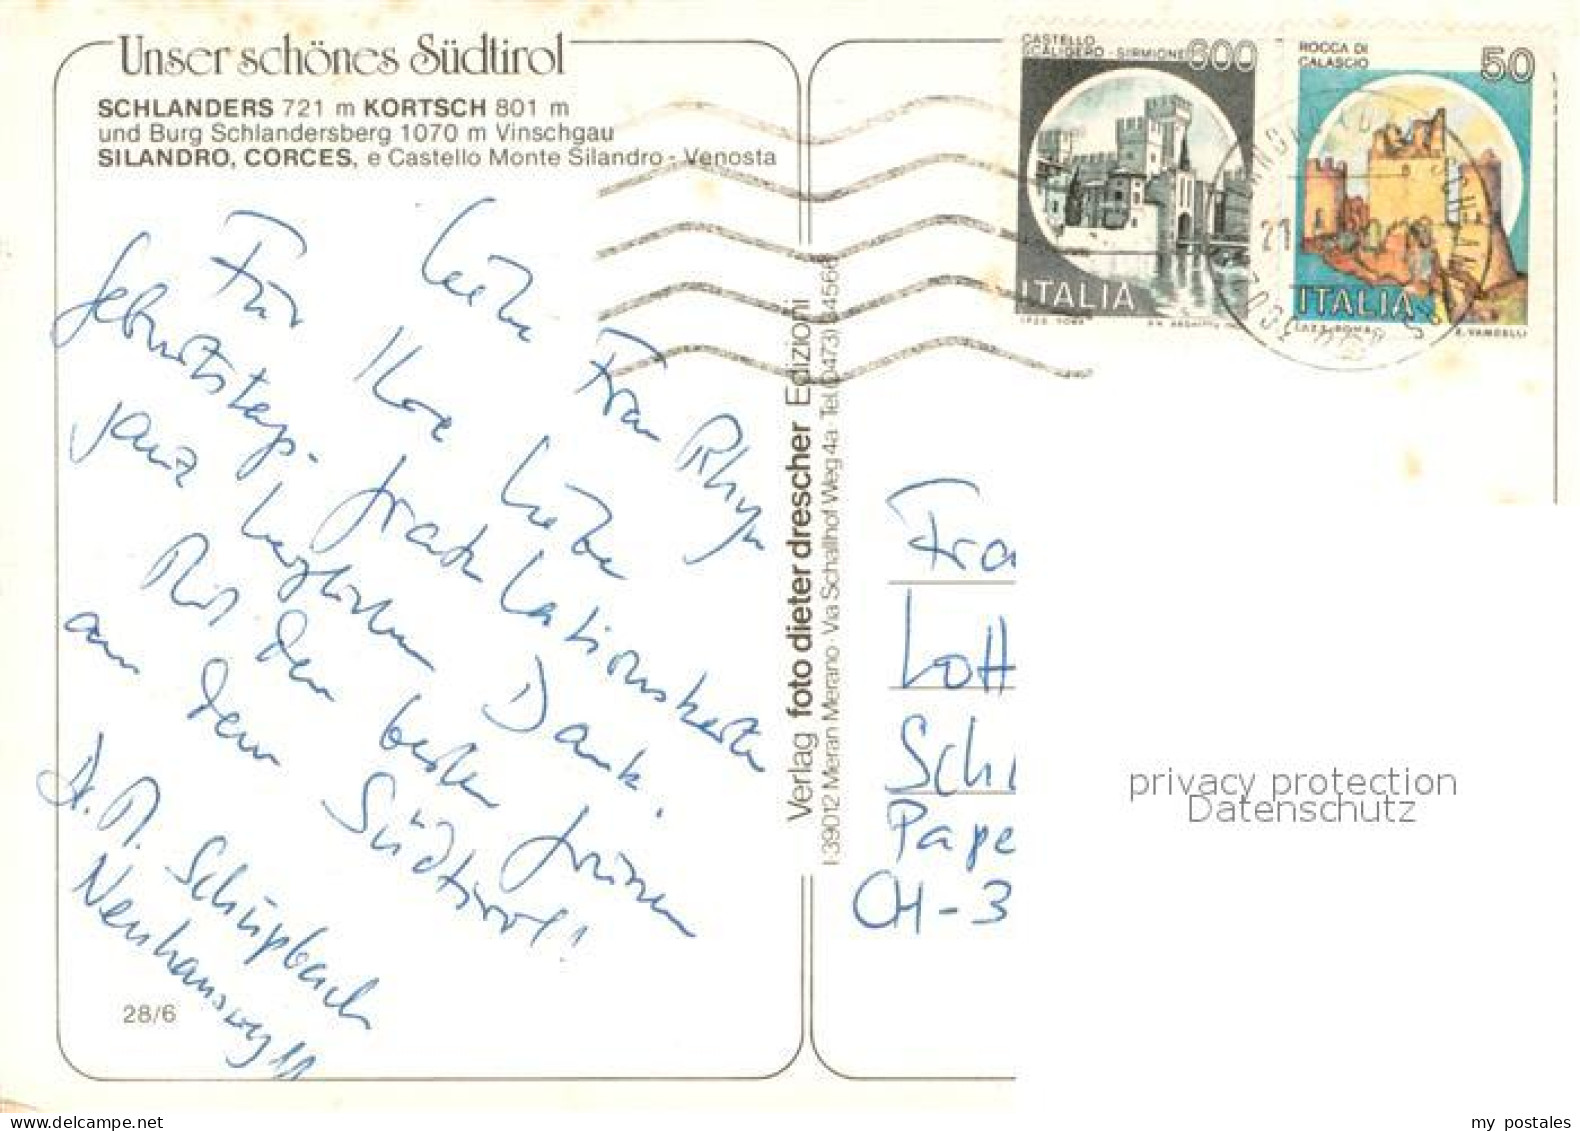 Unser schönes Südtirol
SCHLANDERS 721 m KORTSCH 801 m
und Burg Schlandersberg 1070 m Vinschgau
SILANDRO, CORCES, e Castello Monte Silandro - Venosta
Liebe Frau Rhyn
Für Ihre liebe
Geburtstags-gratulationskarte
ganz herzlichen Dank.
Mit den besten Grüssen
aus dem Südtirol!
Schüpbach
Neuhausweg 11
28/6
Verlag foto dieter drescher Edizioni
I-39012 Meran Merano · Via Schallhof Weg 4a · Tel. (0473) 34566
CASTELLO
SCALIGERO - SIRMIONE 600
ITALIA
ROCCA DI
CALASCIO
50
ITALIA
I.P.Z.S. ROMA
E. VANGELLI
Fra
Lott
Sch
Pape
CH-3
privacy protection
Datenschutz
my postales